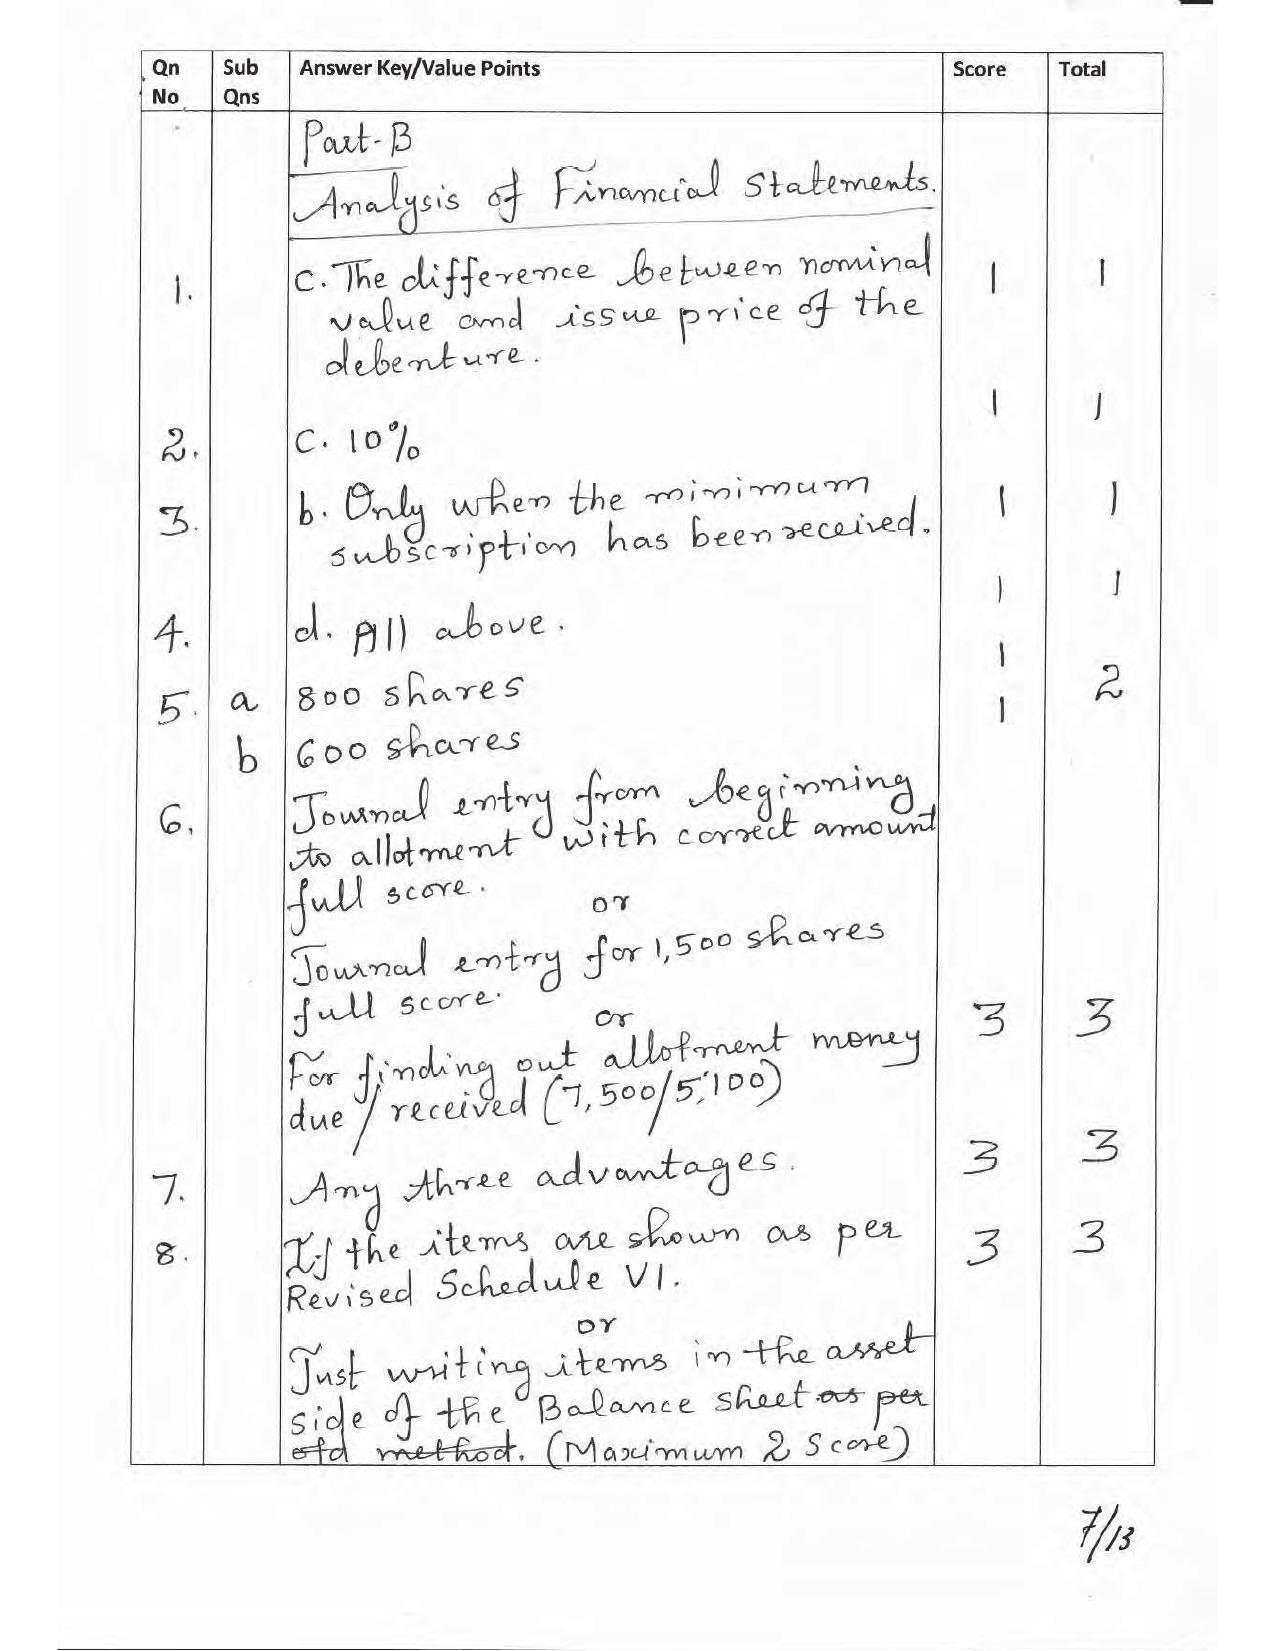 Qn No Sub Qns Answer Key/Value Points Score Total
Part-B
Analysis of Financial Statements.
1. c. The difference between nominal 1 1
value and issue price of the
debenture.
2. c. 10% 1 1
3. b. Only when the minimum 1 1
subscription has been received.
4. d. All above. 1 1
5. a 800 shares 1 2
b 600 shares 1
6. Journal entry from beginning
to allotment with correct amount
full score.
or
Journal entry for 1,500 shares
full score.
or 3 3
For finding out allotment money
due / received (7,500/5,100)
7. Any three advantages. 3 3
8. If the items are shown as per 3 3
Revised Schedule VI.
or
Just writing items in the asset
side of the Balance sheet as per
old method. (Maximum 2 Score)
7/13